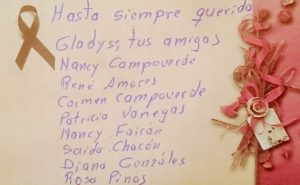 Hasta siempre querida
Gladyss, tus amigas
Nancy Campoverde
René Amores
Carmen Campoverde
Patricia Vanegas
Nancy Faicán
Saida Chacón
Diana Gonzáles
Rosa Pinos